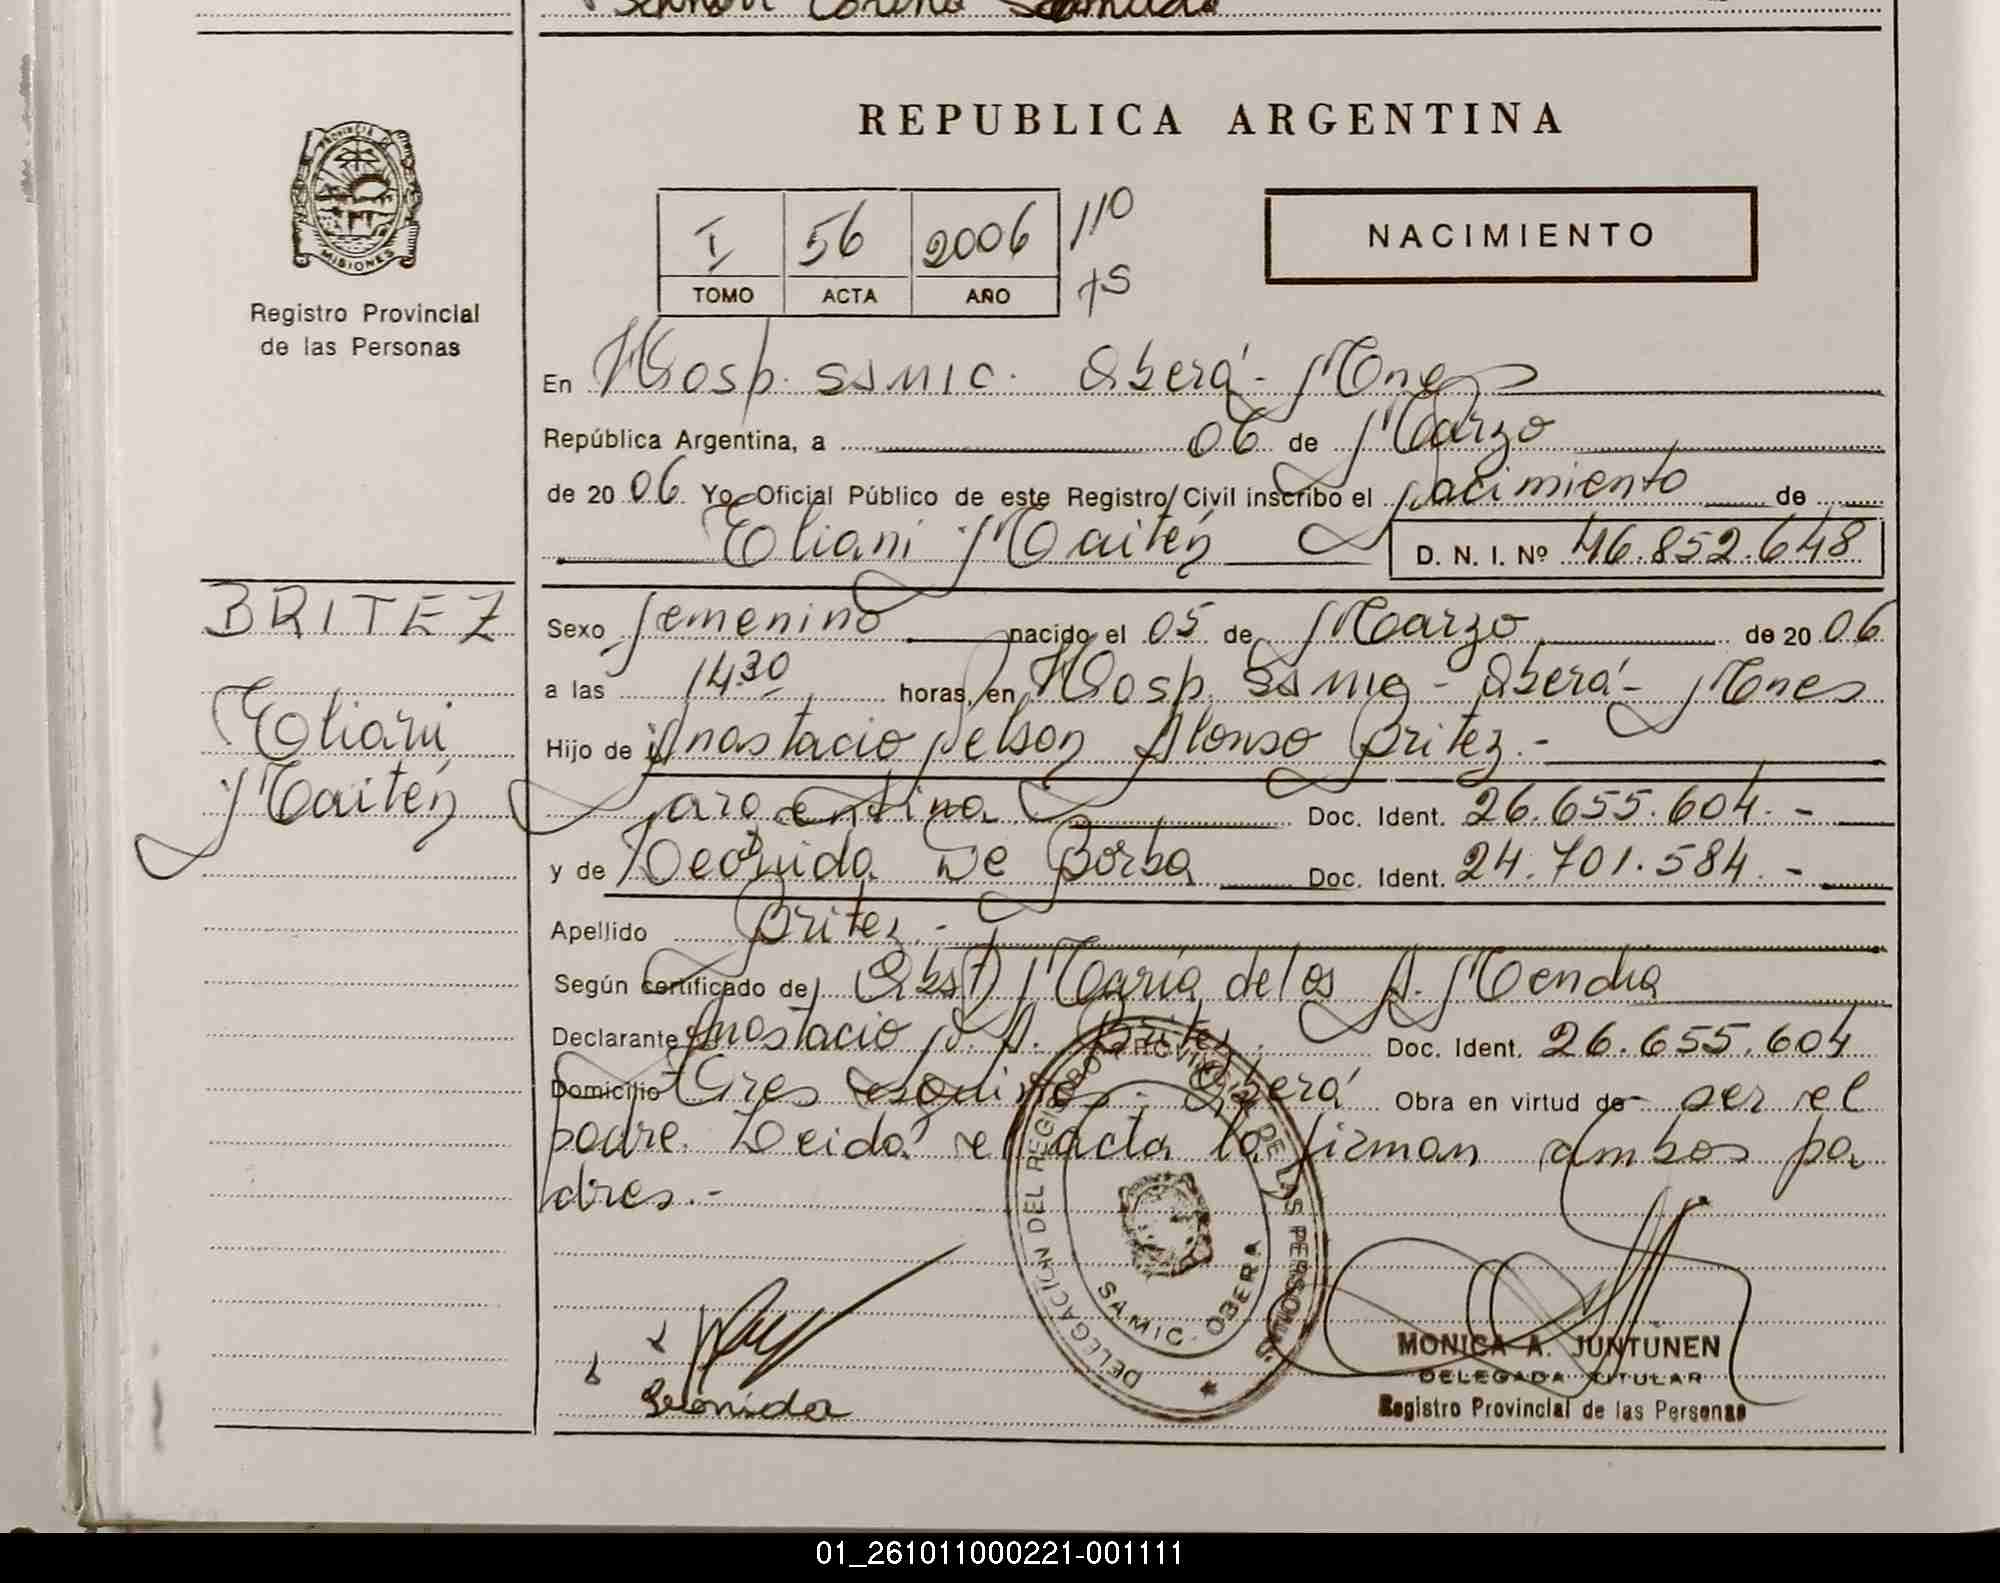 REPUBLICA ARGENTINA
PROVINCIA DE
MISIONES
Registro Provincial
de las Personas
I 56 2006 110
TOMO ACTA AÑO
NACIMIENTO
En Hosp. SAMIC. Oberá - Mnes
República Argentina, a 06 de Marzo
de 20 06 Yo Oficial Público de este Registro Civil inscribo el nacimiento de
Eliani Maitén D. N. I. Nº 46.852.648
BRITEZ
Eliani
Maitén
Sexo femenino nacido el 05 de Marzo de 20 06
a las 14.30 horas, en Hosp. SAMIC - Oberá - Mnes
Hijo de Anastacio Nelson Alonso Britez.-
argentina Doc. Ident. 26.655.604.-
y de Leonida De Borba Doc. Ident. 24.701.584.-
Apellido Britez.-
Según certificado de Obst) María de los A. Mendra
Declarante Anastacio N. A. Britez. Doc. Ident. 26.655.604
Domicilio Tres esquinas - Oberá Obra en virtud de ser el
padre. Leida el acta la firman ambos pa
dres.-
DELEGACION DEL REGISTRO PROVINCIAL DE LAS PERSONAS
SAMIC - OBERA
Leónida
MONICA A. JUNTUNEN
DELEGADA TITULAR
Registro Provincial de las Personas
01_261011000221-001111